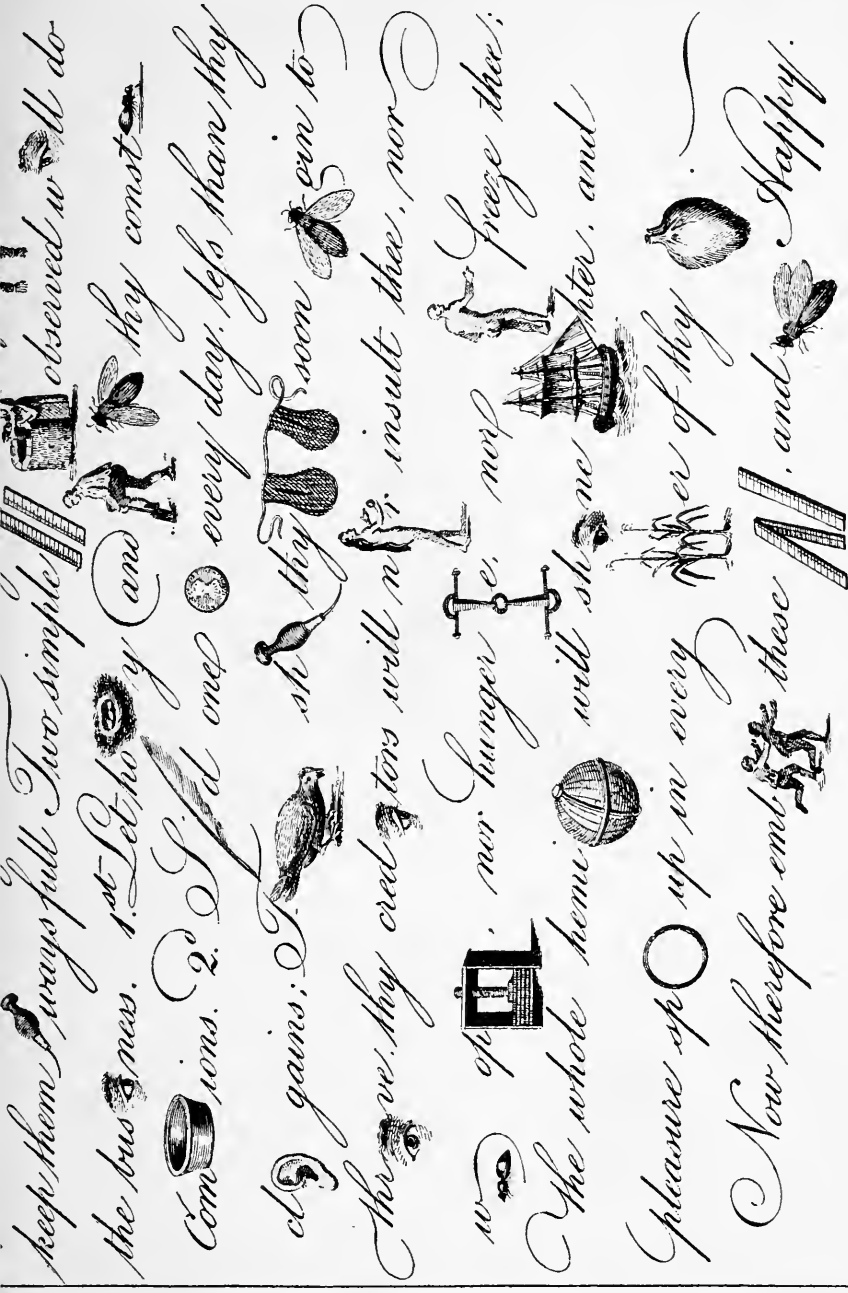 keep them ways full Two simple observed w ll do
the bus ness. 1.st Let ho y and thy const
Com ions. 2.d S d one every day. less than thy
cl gains; T sh thy soon gin to
Thr ve. thy cred tors will n r insult thee, nor
w op , nor hunger e, nor freeze thee;
The whole hemi will sh ne hter, and
pleasure sp up in every er of thy .
Now therefore emb these , and Happy.